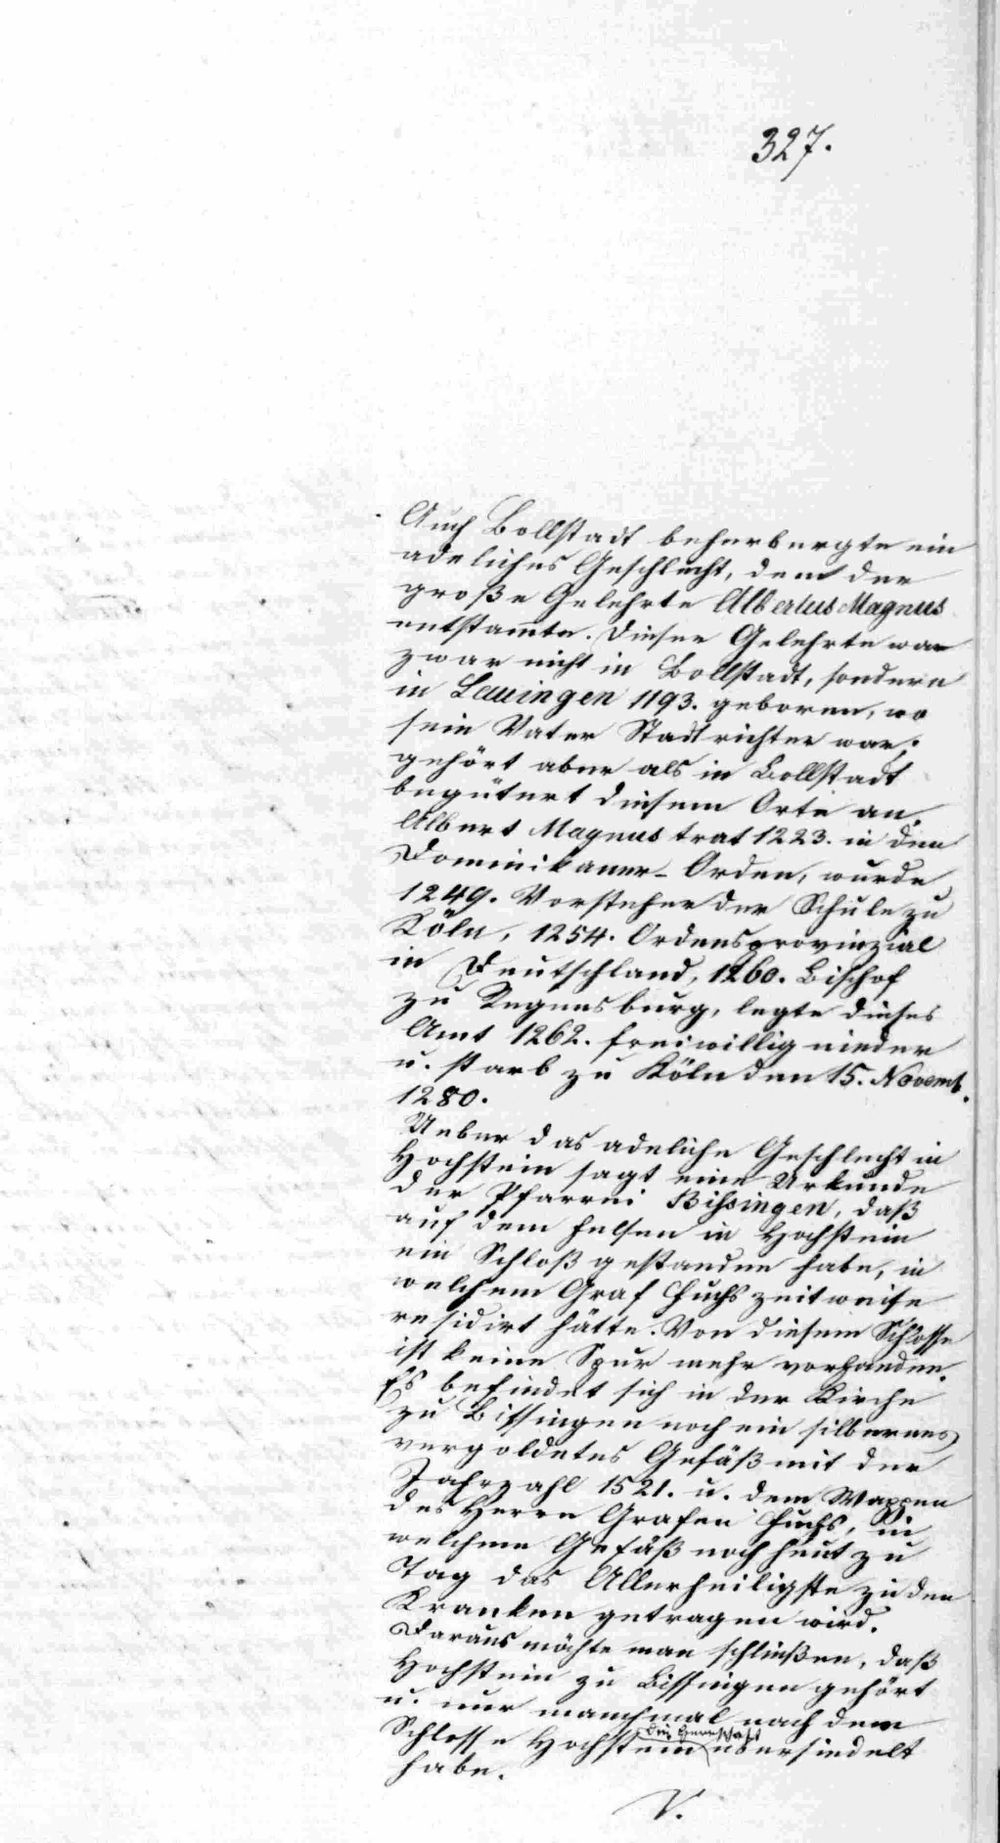 327.
Auch Bollstadt beherbergte ein
adeliches Geschlecht, dem der
große Gelehrte Albertus Magnus
entstam̄te. Dieser Gelehrte war
zwar nicht in Bollstadt, sondern
in Lauingen 1193. geboren, wo
sein Vater Stadtrichter war;
gehört aber als in Bollstadt
begütert diesem Orte an.
Albert Magnus trat 1223. in den
Dominikaner-Orden, wurde
1249. Vorsteher der Schule zu
Köln, 1254. Ordensprovinzial
in Deutschland, 1260. Bischof
zu Regensburg, legte dieses
Amt 1262. freiwillig nieder
u. starb zu Köln den 15. Novemb.
1280.
Ueber das adeliche Geschlecht in
Hochstein sagt eine Urkunde
der Pfarrei Bissingen, daß
auf dem Felsen in Hochstein
ein Schloß gestanden habe, in
welchem Graf Fuchs zeitweise
residirt hätte. Von diesem Schlosse
ist keine Spur mehr vorhanden.
Es befindet sich in der Kirche
zu Bissingen noch ein silbernes
vergoldetes Gefäß mit der
Jahrzahl 1521. u. dem Wappen
des Herrn Grafen Fuchs, in
welchem Gefäß noch heut zu
Tag das Allerheiligste zu den
Kranken getragen wird.
Daraus möchte man schließen, daß
Hochstein zu Bissingen gehört
u. nur manchmal nach dem
die Herrschaft
Schlosse Hochstein übersiedelt
habe.
V.